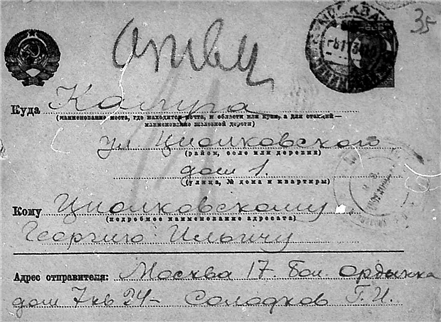 35
МОСКВА
Куда Калуга
(наименование места, где находится почта, и области или края, а для станций —
наименование железной дороги)
ул Циолковского
(район, село или деревня)
дом 1
(улица, № дома и квартиры)
Кому Циолковскому
(подробное наименование адресата)
Георгию Ильичу
Адрес отправителя: Москва 17 Бол Ордынка
дом 7 кв 24 – Солодков Г.И.